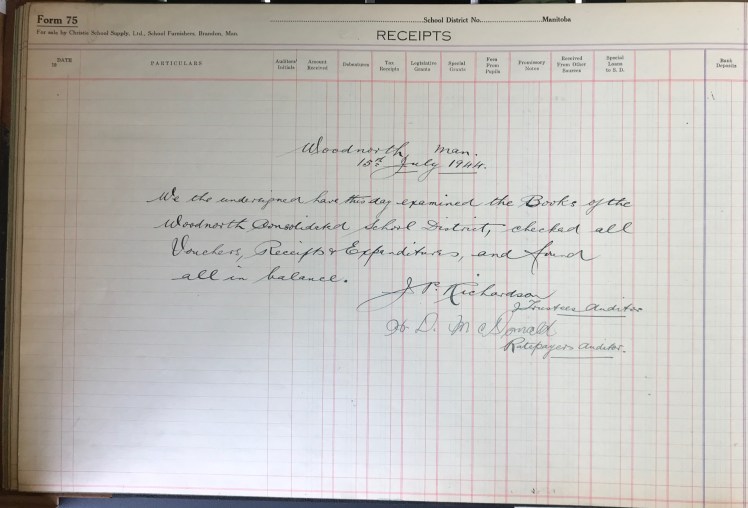 Form 75
School District No. Manitoba
For sale by Christie School Supply, Ltd., School Furnishers, Brandon, Man.
RECEIPTS
DATE 19
PARTICULARS
Auditors' Initials
Amount Received
Debentures
Tax Receipts
Legislative Grants
Special Grants
Fees From Pupils
Promissory Notes
Received From Other Sources
Special Loans to S. D.
Bank Deposits
Woodnorth Man.
15th July 1944.
We the undersigned have this day examined the Books of the
Woodnorth Consolidated School District, checked all
Vouchers, Receipts & Expenditures, and found
all in balance.
Richardson
Trustees Auditor
D. McDonald
Ratepayers Auditor.